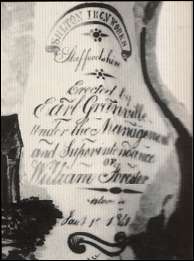 SHELTON IRON WORKS
Staffordshire
Erected by
Earl Granville
Under the Management
and Superintendence
of
William Forester